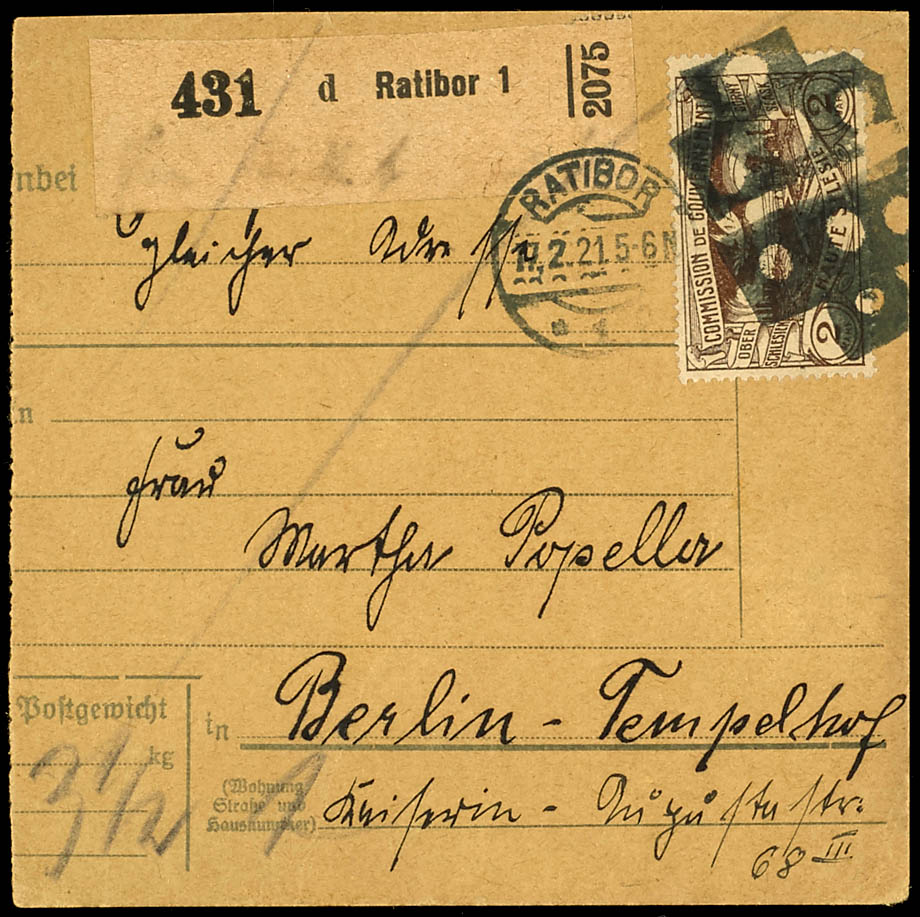 431 d Ratibor 1 2075
nbei
RATIBOR
17.2.21.5-6N
COMMISSION DE GOUVERNEMENT
HAUTE SILESIE
2
OBER
SCHLESIEN
2
gleicher Adresse
in
Frau
Martha Popella
Postgewicht
kg
3 1/2
in Berlin - Tempelhof
(Wohnung
Straße und
Hausnummer)
Kaiserin - Augusta str.
68 III